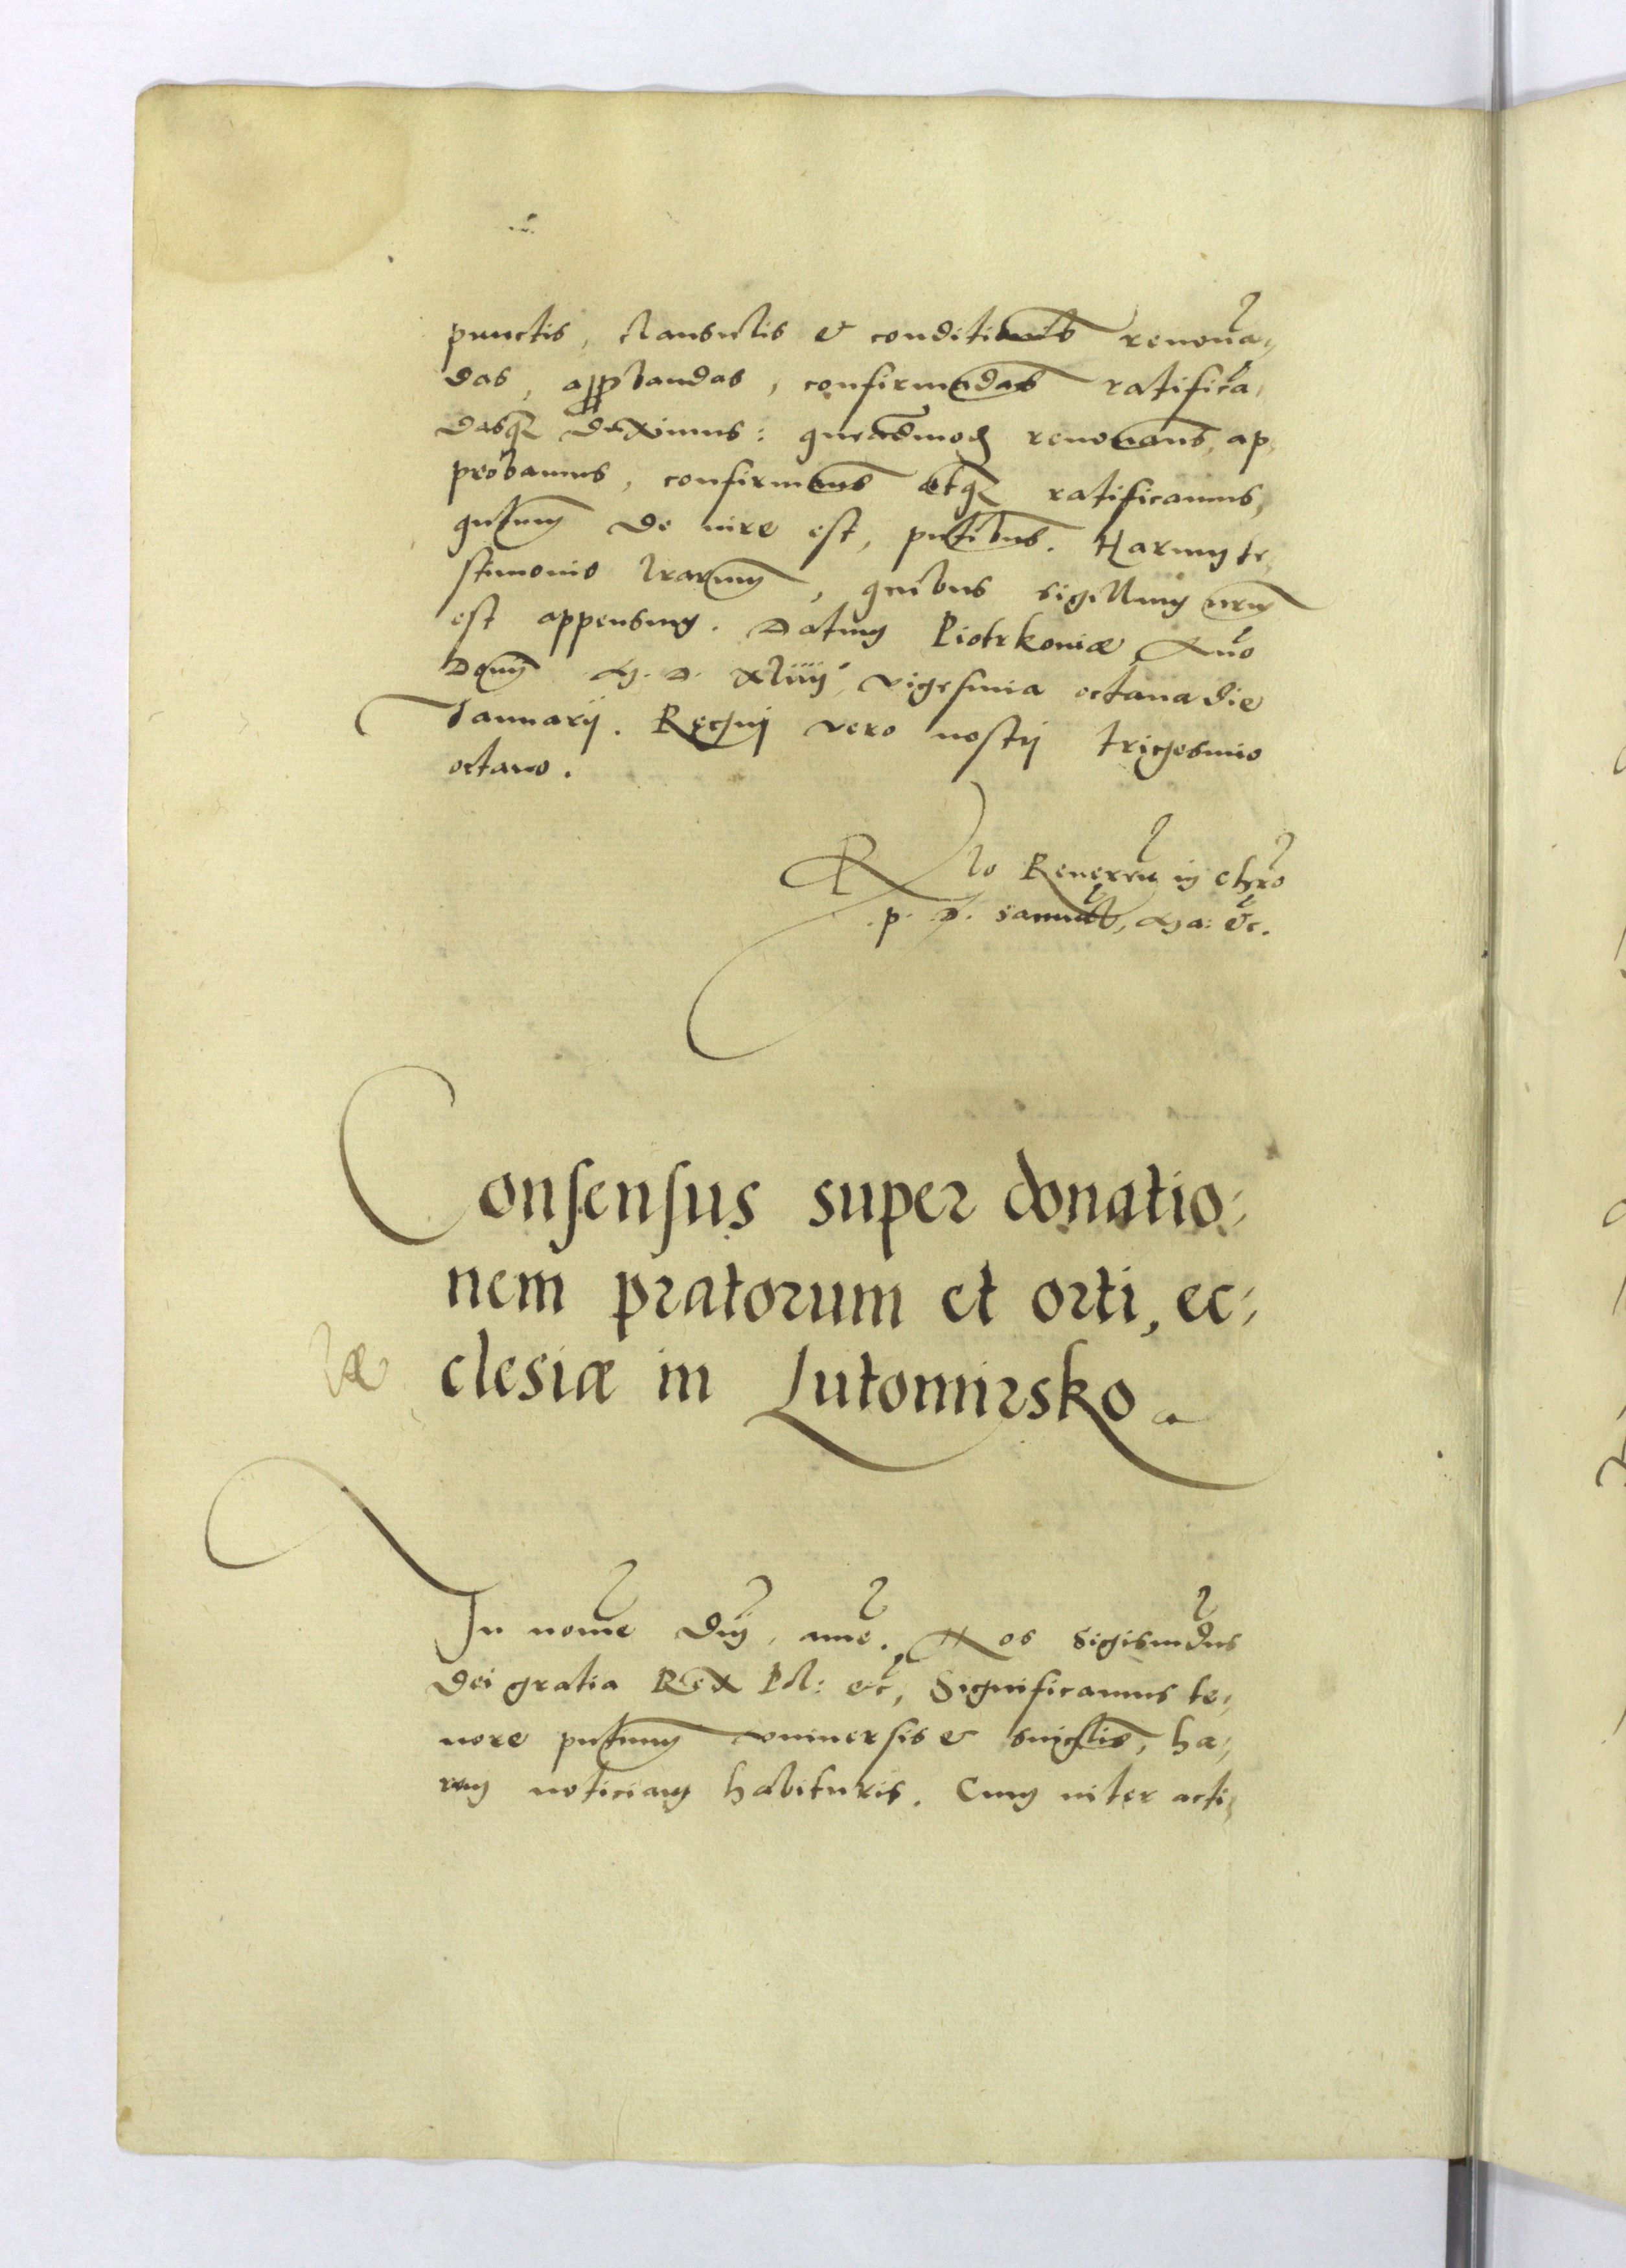 punctis, clausulis & conditionib renoua=
das, approbandas, confirmādas ratifica=
dasq; duximus: queadmod renouams, ap=
probamus, confirmams atq; ratificamus,
qutum de iure est, pntibus. Harum te=
stimonio lrarum, quibus sigillum nrm
est appensum. Datum Piotrkoniæ Ano
Domi M. D. XLiiij, vigesima octaua die
Januarij. Regni vero nostri trigesimo
octauo.
Rlo Reueren in chro
p. D. Samuel, Ma: &c.
Consensus super donatio=
nem pratorum et orti, ec=
clesiæ in Lutomirsko
læ
In nome Dni, ame. Nos Sigismūdus
Dei gratia Rex Pol: &c, Significamus te=
nore pntium vniuersis & singlis, ha=
rum noticiam habituris. Cum inter acti=